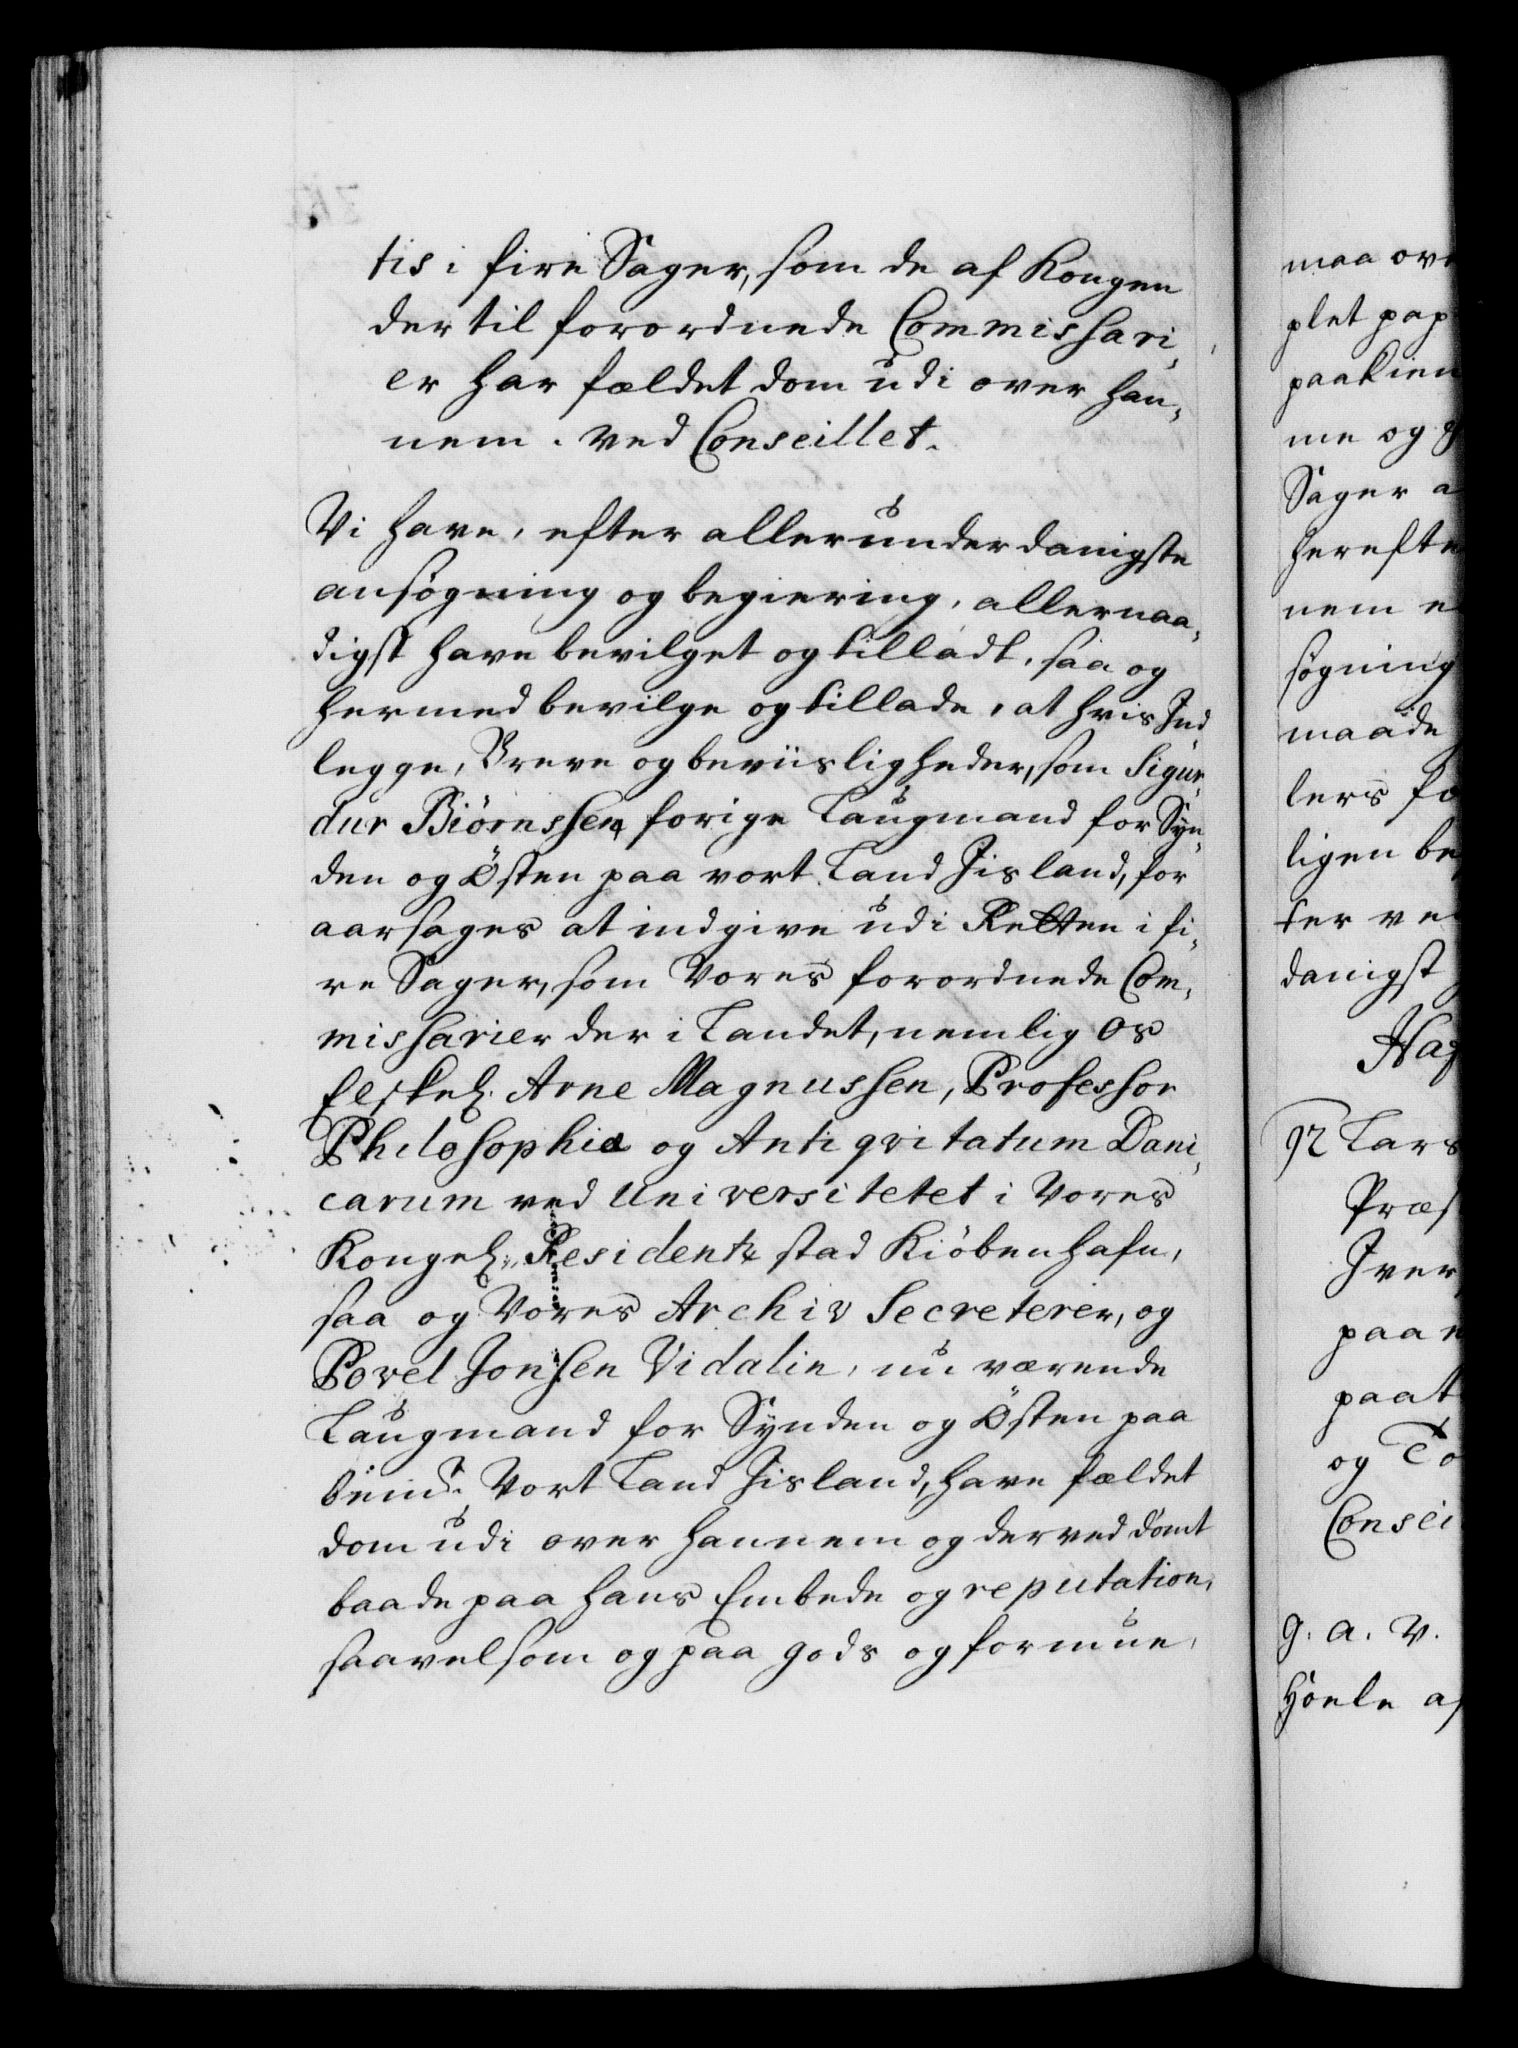 tis i fire Sager, som de af Kongen
dertil forordnede Commissari-
er har fældet dom udi over han-
nem. ved Conseillet.
Vi have, efter allerunderdanigste
ansøgning og begiering, allernaa-
digst have bevilget og tilladt, saa og
hermed bevilge og tillade, at hvis Ind
legge, Breve og beviisligheder, som Sigur-
dur Biörnssen, forige Laugmand for Syn-
den og Østen paa vort Land Jisland, for
aarsages at indgive udi Retten i fi-
re Sager, som Vores forordnede Com-
missarier der i Landet, nemlig Os
Elskel. Arne Magnussen, Professor
Philosophiæ og Antiqvitatum Dani-
carum ved Universitetet i Vores
Kongel. Residentz stad Kiöbenhafn,
saa og Vores Archiv Secreterer, og
Povel Jonssen Vidalin, nu værende
Laugmand for Synden og Østen paa
bem.te Vort Land Jisland, have fældet
dom udi over hannem og derved dömt
baade paa hans Embede og reputation,
saavelsom og paa gods og formue,
maa ov
plet pap
paakien
me og
Sager a
herefte
nem e
søgning
maade
lers fo
ligen be
ter ve
danigst
Hag
Lars
Præs
Iver
paa
paat
og To
Consei
g. a. v.
Höele af